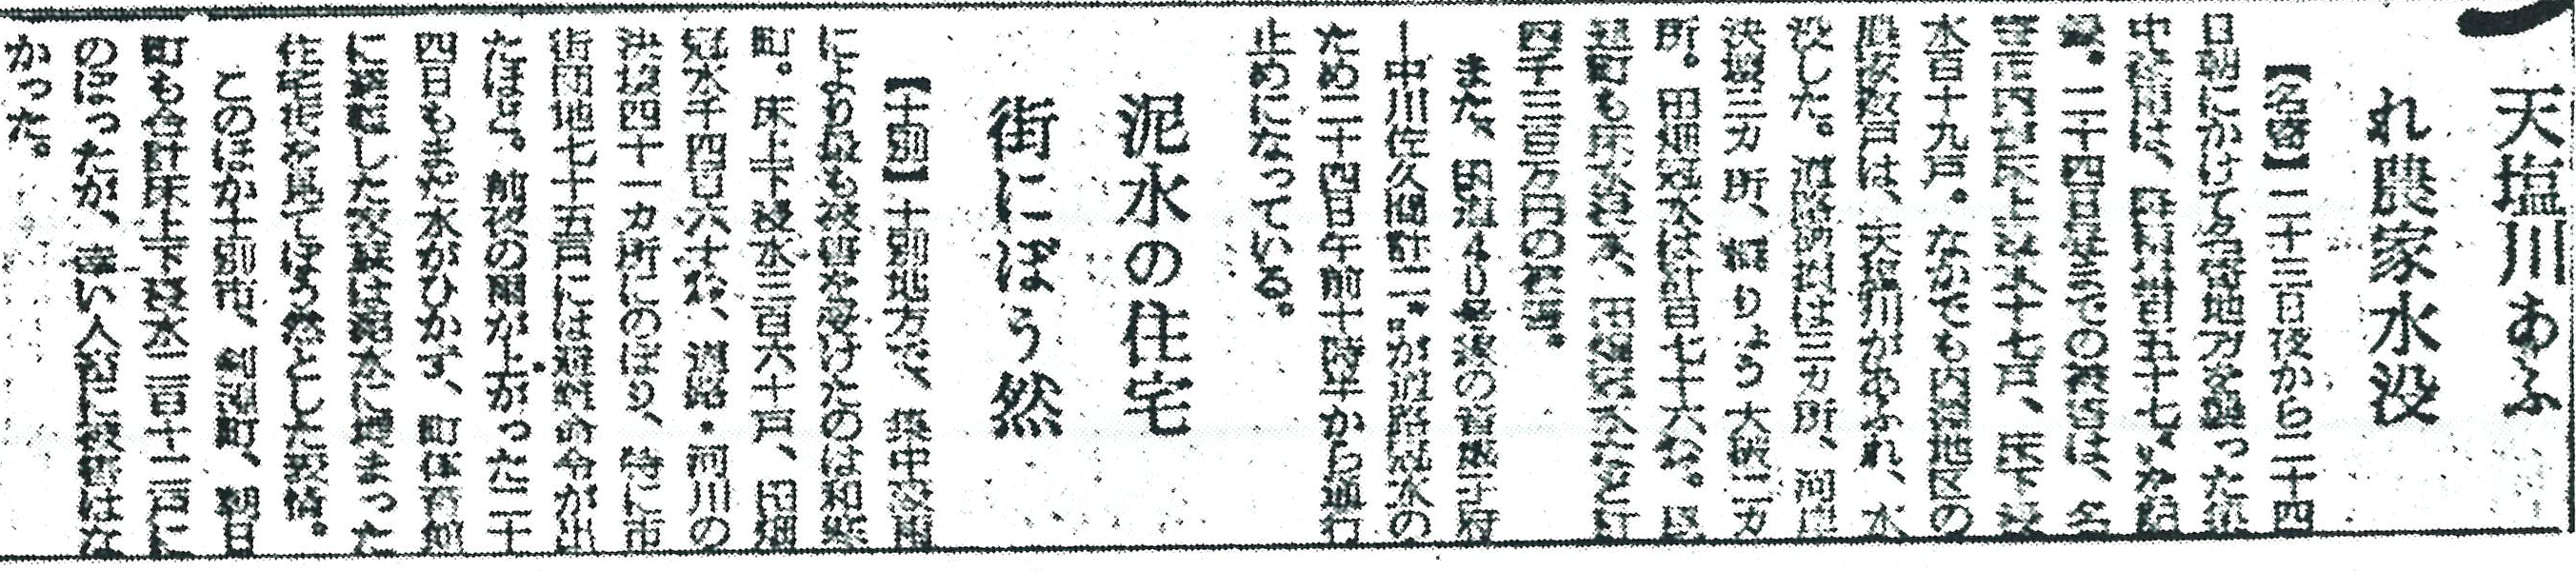 天塩川あふ
れ農家水没
【名寄】二十三日夜から二十四
日朝にかけて名寄地方を襲った集
中豪雨は、
録。二十四日昼までの被害は、名
寄市内が床上浸水十七戸、床下浸
水百十九戸。なかでも内淵地区の
農家数戸は、天塩川があふれ、水
没した。道路決壊は三カ所、河岸
決壊三カ所、橋りょう大破二カ
所。田畑冠水は計百七十六㌶。
町も床下浸水、田畑冠水など計
四千三百万円の被害。
また、国道40号
―中川佐久間計二 が道路冠水の
ため二十四日午前十時半から通行
止めになっている。
泥水の住宅
街にぼう然
【士別】士別地方で、集中豪雨
により最も被害を受けたのは和寒
町。床上下浸水三百六十戸、田畑
冠水千四百六十㌶、道路・河川の
決壊四十一カ所にのぼり、特に市
街団地七十五戸には避難命令が出
たほど。前夜の雨が上がった二十
四日もまだ水がひかず、町体育館
に避難した家族は泥水に埋まった
住宅街を見てぼう然とした表情。
このほか士別市、剣淵町、朝日
町も合計床上下浸水二百十二戸に
のぼったが、幸い人畜に被害はな
かった。